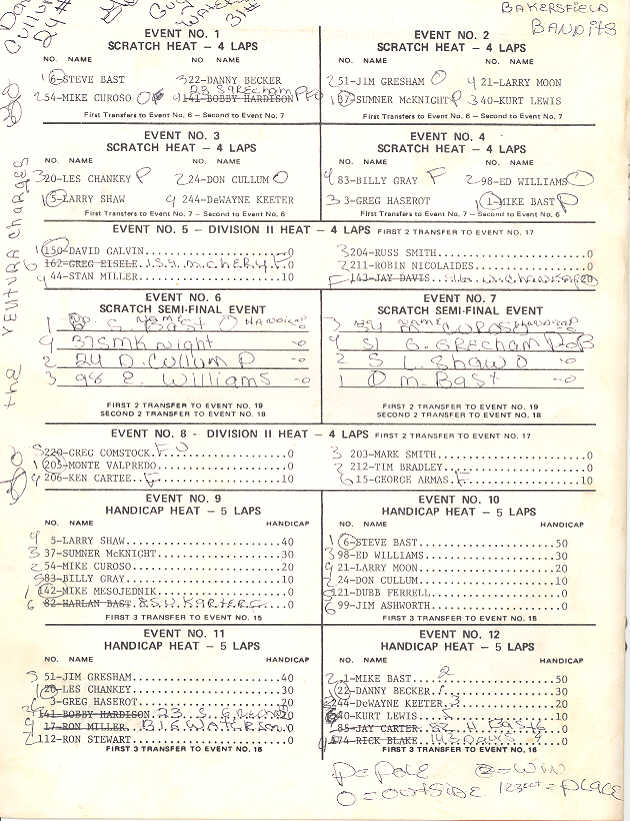 BAKERSFIELD
BANDITS
24#
31#
the VENTURA Charges
EVENT NO. 1
SCRATCH HEAT — 4 LAPS
NO. NAME NO. NAME
1 6-STEVE BAST 3 22-DANNY BECKER
2 54-MIKE CUROSO O 4 141-BOBBY HARDISON
First Transfers to Event No. 6 — Second to Event No. 7
EVENT NO. 2
SCRATCH HEAT — 4 LAPS
NO. NAME NO. NAME
2 51-JIM GRESHAM O 4 21-LARRY MOON
1 37-SUMNER McKNIGHT P 3 40-KURT LEWIS
First Transfers to Event No. 6 — Second to Event No. 7
EVENT NO. 3
SCRATCH HEAT — 4 LAPS
NO. NAME NO. NAME
3 20-LES CHANKEY P 2 24-DON CULLUM O
1 5-LARRY SHAW 4 244-DeWAYNE KEETER
First Transfers to Event No. 7 — Second to Event No. 6
EVENT NO. 4
SCRATCH HEAT — 4 LAPS
NO. NAME NO. NAME
4 83-BILLY GRAY F 2 98-ED WILLIAMS O
3 3-GREG HASEROT 1 1-MIKE BAST P
First Transfers to Event No. 7 — Second to Event No. 6
EVENT NO. 5 - DIVISION II HEAT - 4 LAPS FIRST 2 TRANSFER TO EVENT NO. 17
1 150-DAVID GALVIN 0 3 204-RUSS SMITH 0
162-GREG EISELE 0 2 211-ROBIN NICOLAIDES 0
4 44-STAN MILLER 10 F 143-JAY DAVIS 20
EVENT NO. 6
SCRATCH SEMI-FINAL EVENT
NO. NAME HANDICAP
1 S. BAST O
4 37 SMK night -0
2 24 D. Cullum P -0
3 98 E. Williams -0
FIRST 2 TRANSFER TO EVENT NO. 19
SECOND 2 TRANSFER TO EVENT NO. 18
EVENT NO. 7
SCRATCH SEMI-FINAL EVENT
NO. NAME HANDICAP
3 54 M. CUROSO
4 51 G. GRECHAM
2 5 L. SHAW O -0
1 M. BAST -0
FIRST 2 TRANSFER TO EVENT NO. 19
SECOND 2 TRANSFER TO EVENT NO. 18
EVENT NO. 8 - DIVISION II HEAT — 4 LAPS FIRST 2 TRANSFER TO EVENT NO. 17
220-GREG COMSTOCK 0 3 203-MARK SMITH 0
1 205-MONTE VALPREDO 0 2 212-TIM BRADLEY 0
4 206-KEN CARTEE F 10 6 15-GEORGE ARMAS F 10
EVENT NO. 9
HANDICAP HEAT - 5 LAPS
NO. NAME HANDICAP
4 5-LARRY SHAW 40
3 37-SUMNER McKNIGHT 30
2 54-MIKE CUROSO 20
5 83-BILLY GRAY 10
1 142-MIKE MESOJEDNIK 0
6 82-HARLAN BAST 0
FIRST 3 TRANSFER TO EVENT NO. 15
EVENT NO. 10
HANDICAP HEAT - 5 LAPS
NO. NAME HANDICAP
1 6-STEVE BAST 50
3 98-ED WILLIAMS 30
4 21-LARRY MOON 20
2 24-DON CULLUM 10
5 121-DUBB FERRELL 0
6 99-JIM ASHWORTH 0
FIRST 3 TRANSFER TO EVENT NO. 15
EVENT NO. 11
HANDICAP HEAT - 5 LAPS
NO. NAME HANDICAP
3 51-JIM GRESHAM 40
1 20-LES CHANKEY 30
3-GREG HASEROT 20
141-BOBBY HARDISON 23 S. 20
17-RON MILLER 0
2 112-RON STEWART 0
FIRST 3 TRANSFER TO EVENT NO. 16
EVENT NO. 12
HANDICAP HEAT - 5 LAPS
NO. NAME HANDICAP
2 1-MIKE BAST 2 50
1 22-DANNY BECKER 1 30
244-DeWAYNE KEETER 3 20
40-KURT LEWIS 5 10
85-JAY CARTER 82 H BAST 6 0
574-RICK BLAKE 143 DAVIS 4 0
FIRST 3 TRANSFER TO EVENT NO. 16
P=POLE O=WIN
O=OUTSIDE 123ECT=PLACE